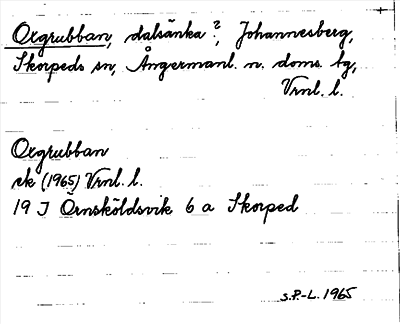 Oxgrubban, dalsänka?, Johannesberg,
Skorpeds sn, Ångermanl. n. doms. tg,
Vrnl. l.
Oxgrubban
ek (1965) Vrnl. l.
19 J Ornsköldsvik 6 a Skorped
S.P.-L. 1965